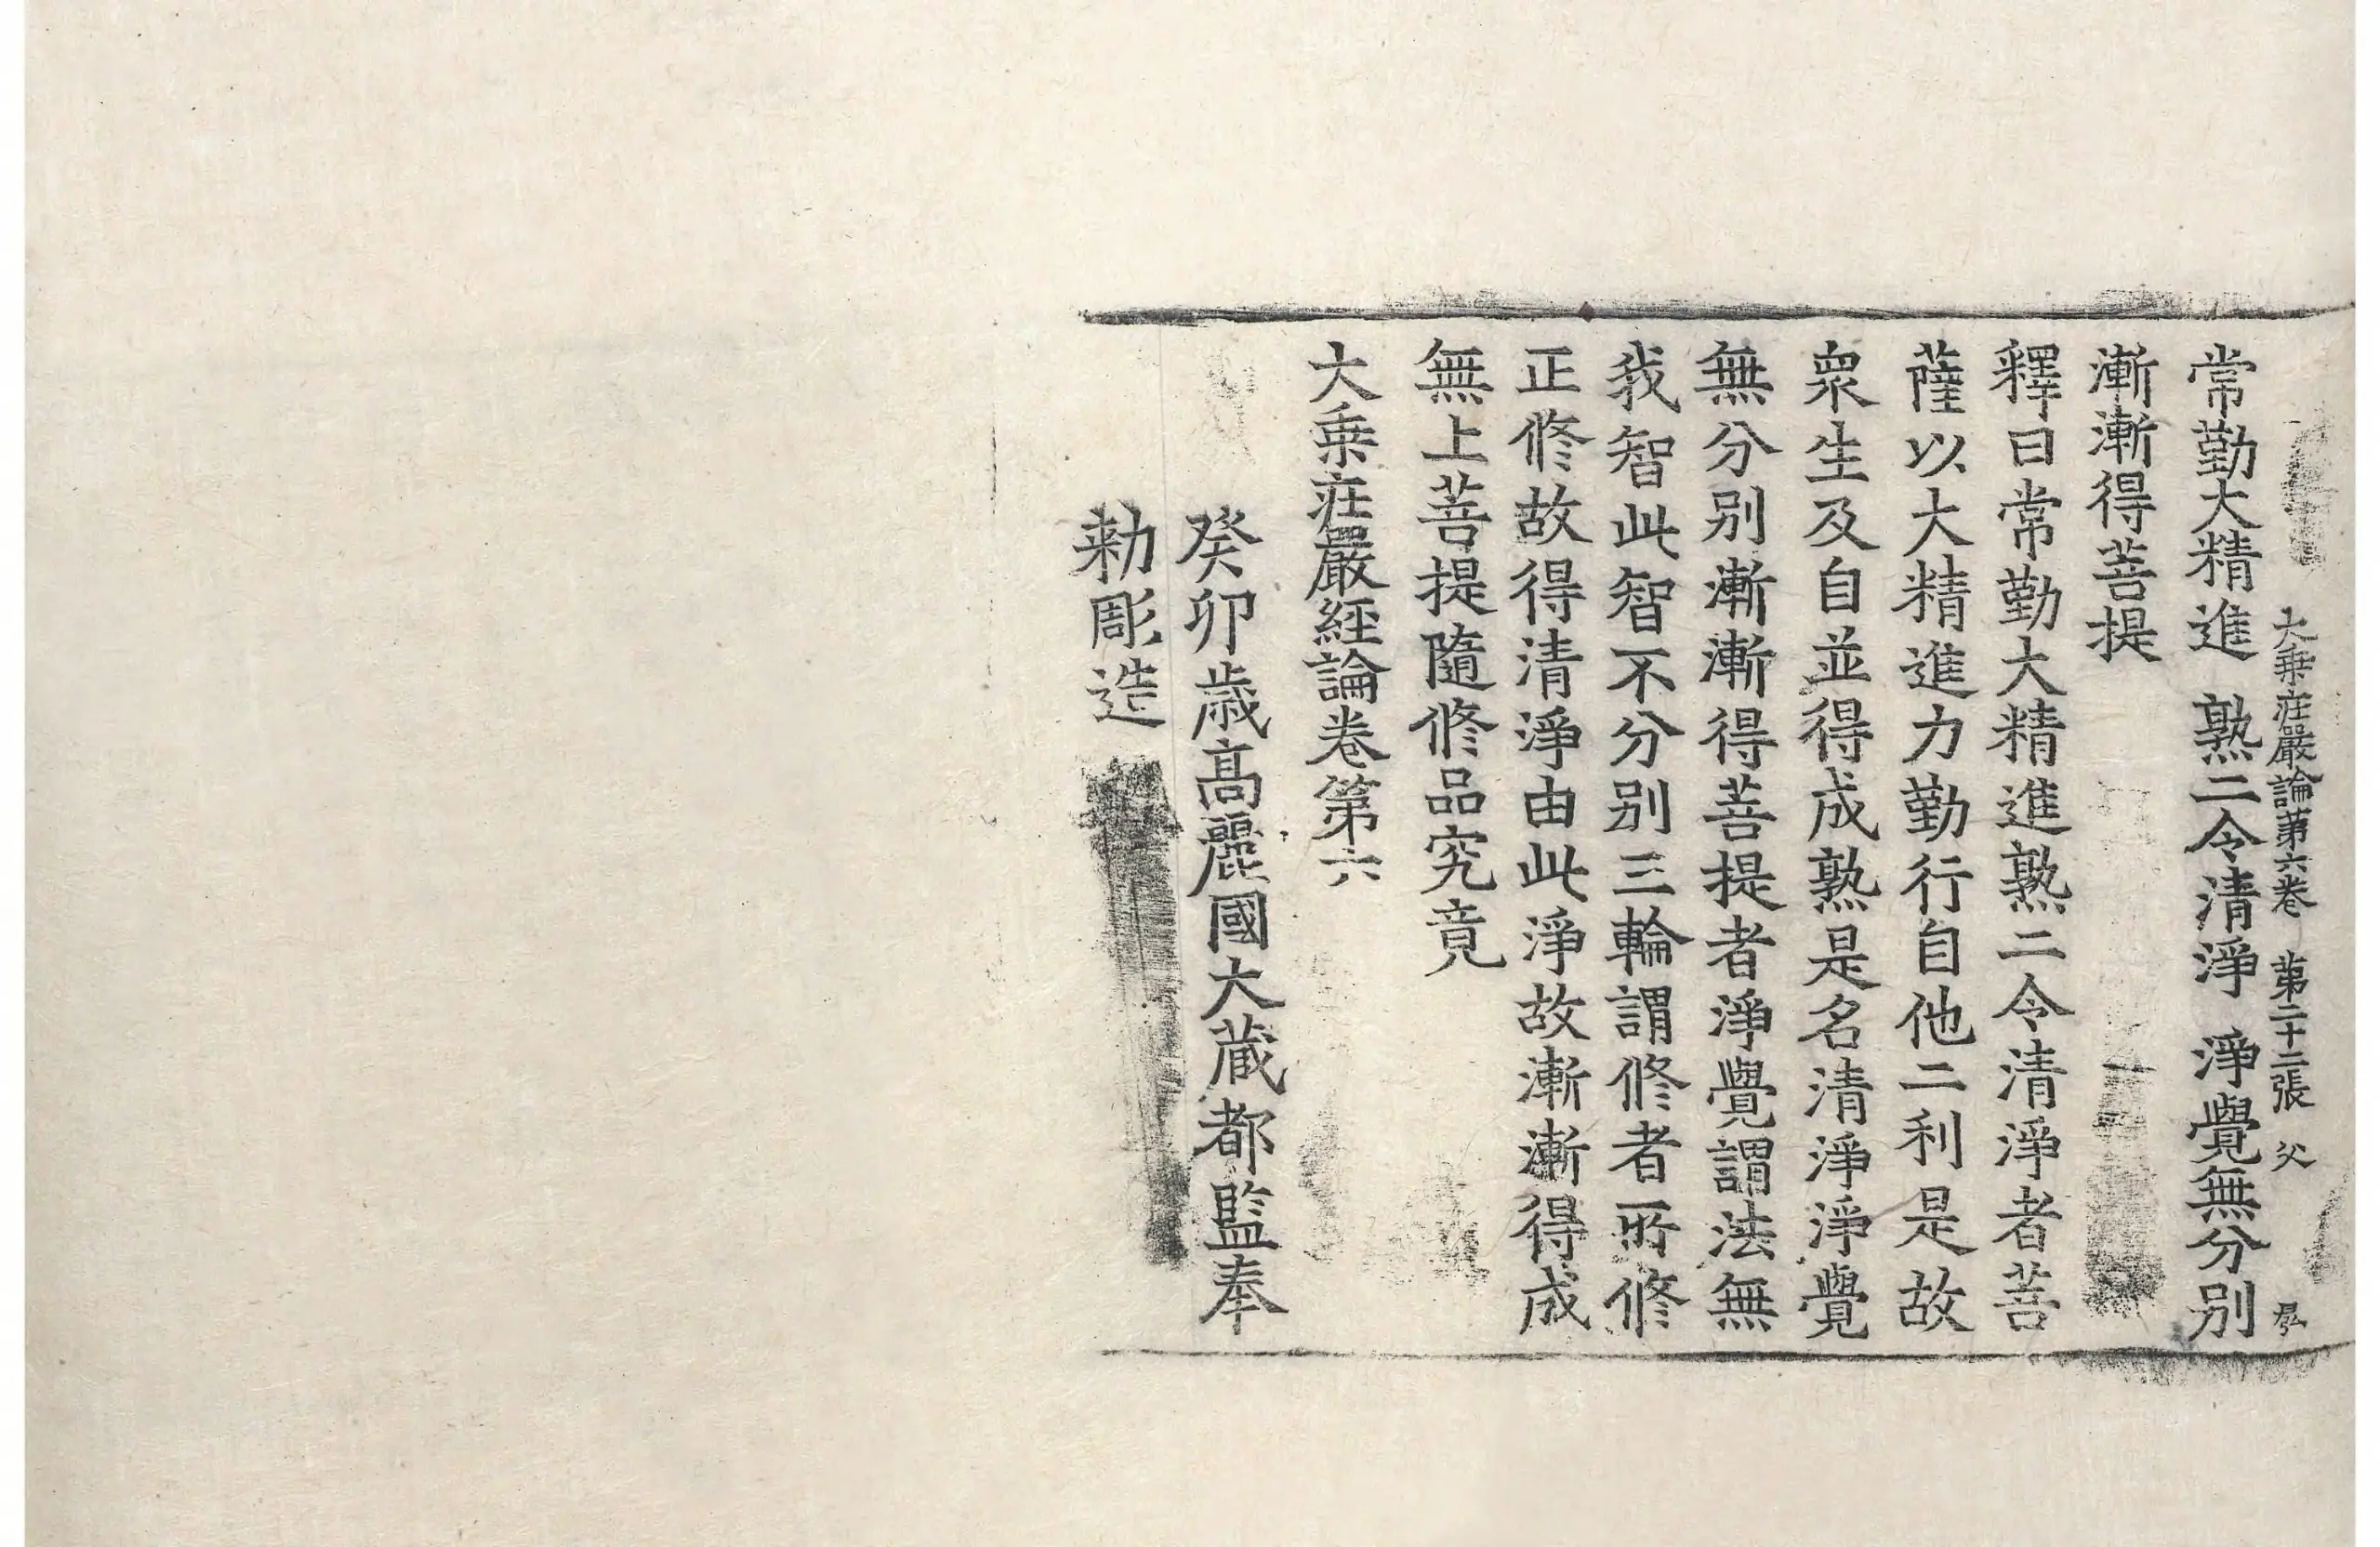 大乗莊嚴論第六卷 第二十二張 父
常勤大精進 熟二令清淨 淨覺無分別
漸漸得菩提
釋曰常勤大精進熟二令清淨者菩
薩以大精進力勤行自他二利是故
衆生及自並得成熟是名清淨淨覺
無分別漸漸得菩提者淨覺謂法無
我智此智不分別三輪謂修者所修
正修故得清淨由此淨故漸漸得成
無上菩提隨修品究竟
大乗莊嚴經論卷第六
癸卯歲高麗國大藏都監奉
勅彫造